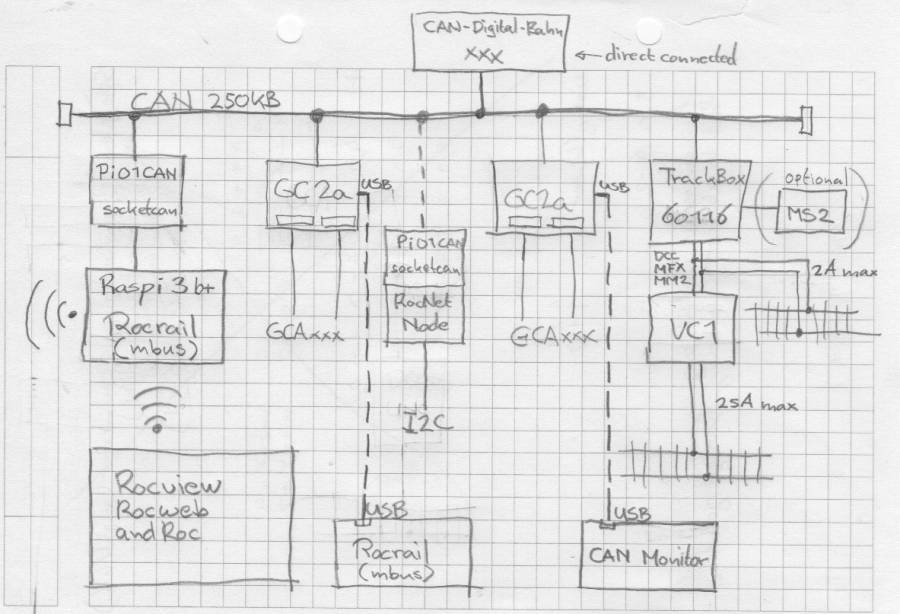 CAN-Digital-Bahn
xxx
← direct connected
CAN 250KB
Pi01CAN
socketcan
GC2a
USB
Pi01CAN
socketcan
RocNet
Node
I2C
GC2a
USB
TrackBox
60116
(optional)
MS2
DCC
MFX
MM2
2A max
Raspi 3b+
Rocrail
(mbus)
GCAxxx
GCAxxx
VC1
25A max
Rocview
Rocweb
and Roc
USB
Rocrail
(mbus)
USB
CAN Monitor